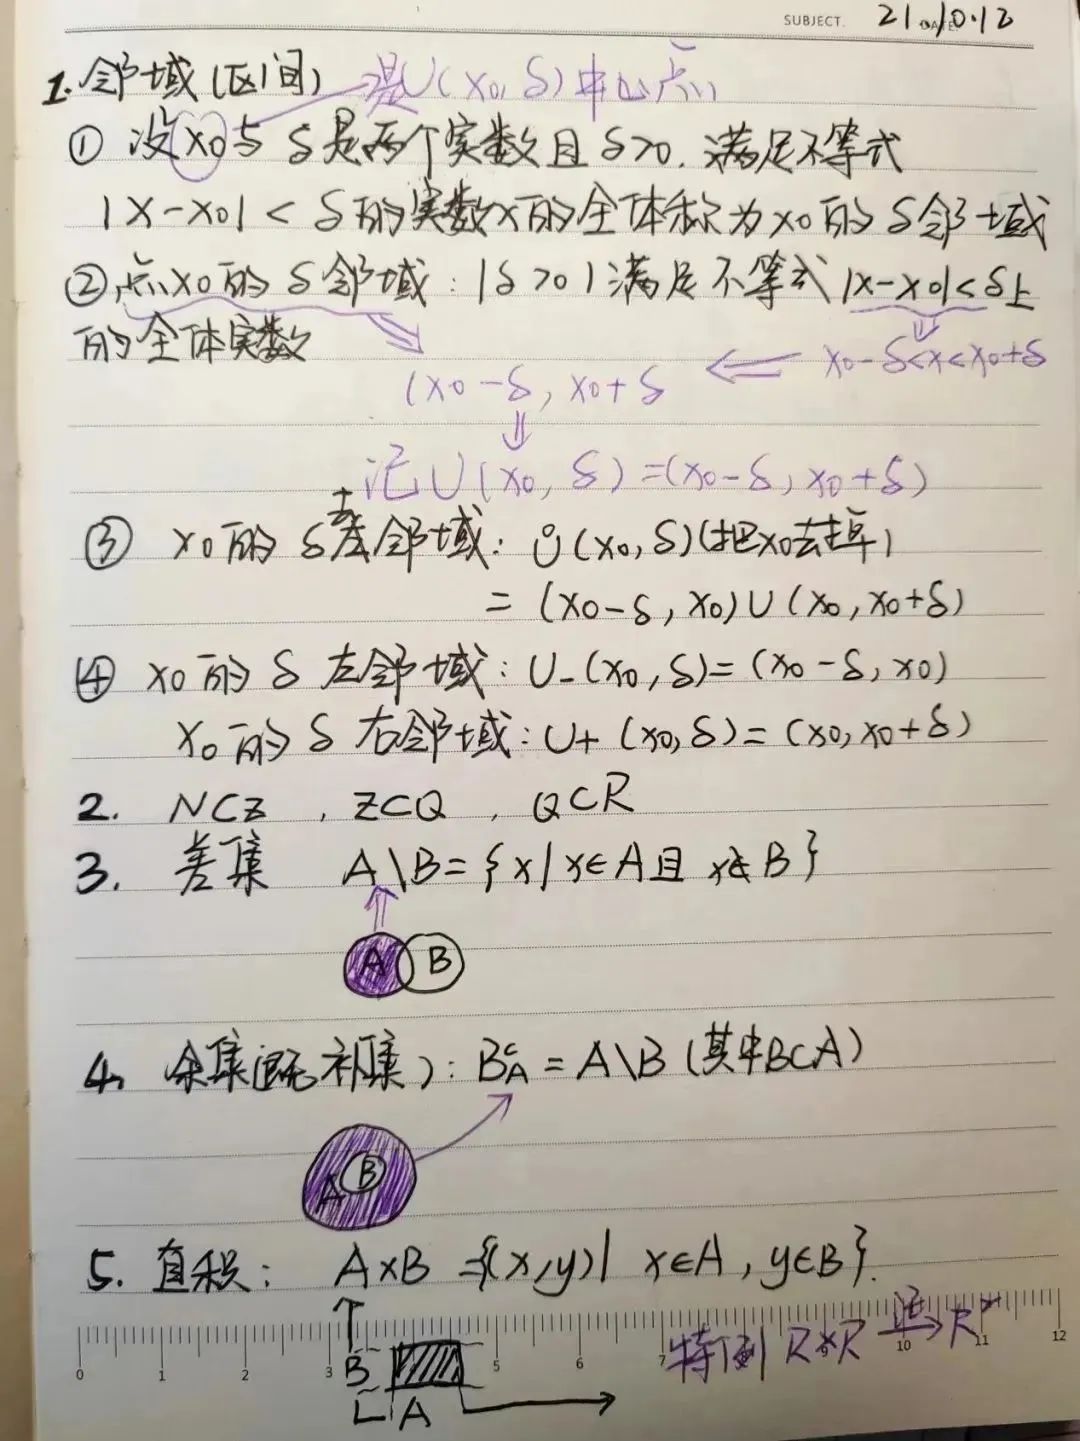 SUBJECT. 21.10.12
1. 邻域(区间) 是U(x0, δ)中心点
① 设x0与δ是两个实数且δ>0. 满足不等式
|x-x0|<δ的实数x的全体称为x0的δ邻域
②点x0的δ邻域: |δ>0|满足不等式|x-x0|<δ上
的全体实数
x0-δ<x<x0+δ
(x0-δ, x0+δ
记U(x0, δ)=(x0-δ, x0+δ)
③ x0的δ去邻域: Ů(x0, δ)(把x0去掉)
=(x0-δ, x0)U(x0, x0+δ)
④ x0的δ左邻域: U-(x0, δ)=(x0-δ, x0)
x0的δ右邻域: U+(x0, δ)=(x0, x0+δ)
2. N⊂Z , Z⊂Q , Q⊂R
3. 差集 A\B={x|x∈A且x∉B}
A B
4. 余集(或补集): BᶜA=A\B(其中B⊂A)
A B
5. 直积: A×B={(x,y)| x∈A, y∈B}.
特例 R×R 记→R²
0 1 2 3 5 6 7 9 10 11 12
B
A